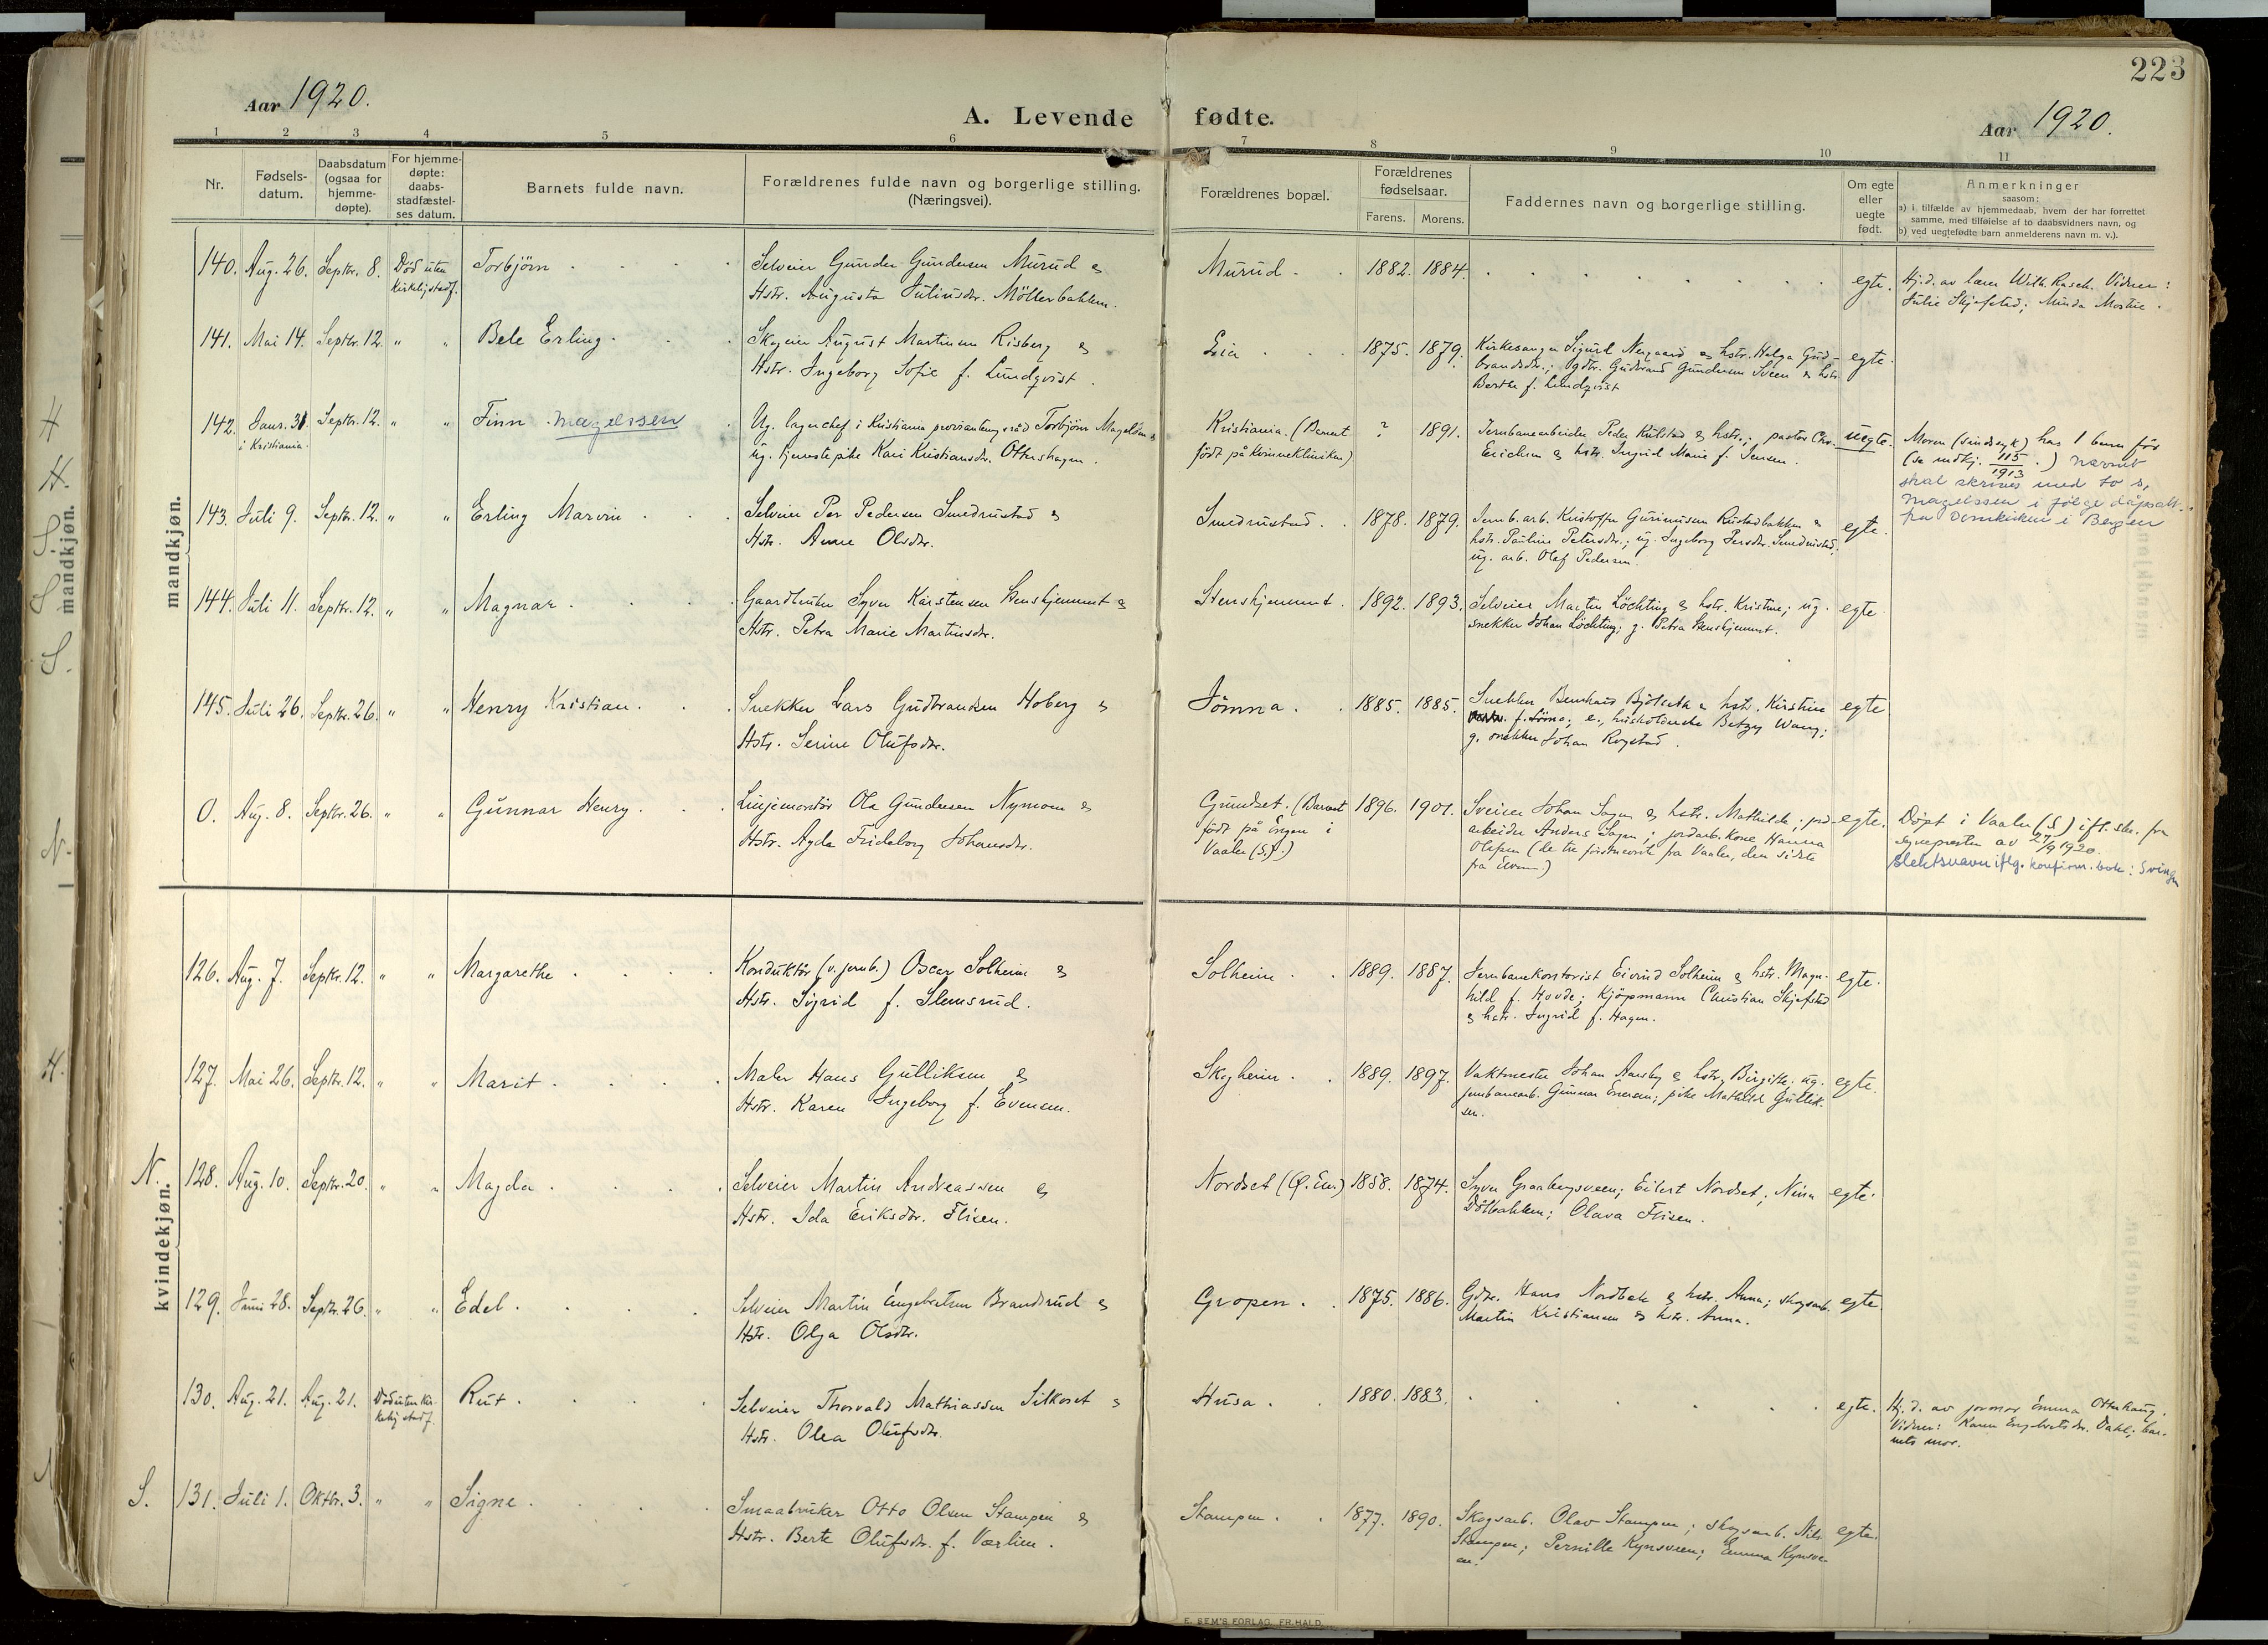 223
Aar 1920.
A. Levende fødte.
Aar 1920.
1 2 3 4 5 6 7 8 9 10 11
Nr.
Fødsels-
datum.
Daabsdatum
(ogsaa for
hjemme-
døpte).
For hjemme-
døpte:
daabs-
stadfæstel-
ses datum.
Barnets fulde navn.
Forældrenes fulde navn og borgerlige stilling.
(Næringsvei).
Forældrenes bopæl.
Forældrenes
fødselsaar.
Farens. Morens.
Faddernes navn og borgerlige stilling.
Om egte
eller
uegte
født.
Anmerkninger
saasom:
a) i tilfælde av hjemmedaab, hvem der har forrettet
samme, med tilføielse af to daabsvidners navn, og
b) ved uegtefødte barn anmelderens navn m. v.).
mandkjøn.
140. Aug. 26. Septbr. 8. Död uten
kirkelig stadf.
Torbjörn
Selveier Gunder Gundersen Murud &
Hstr. Augusta Juliusdr. Möllerbakken.
Murud. 1882. 1884. egte.
Hj.d. av lærer Wilh. Rasch. Vidner:
Julie Skjefstad; Minda Mostue.
141. Mai 14. Septbr. 12. " "
Bele Erling.
Skogeier August Martinsen Risberg &
Hstr. Ingeborg Sofie f. Lundqvist.
Lia 1875. 1879.
Kirkesanger Sigurd Nergaard & hstr. Helga Gud-
brandsdr.; Gdbr. Gudbrand Gundersen Sveen & hstr.
Berthe f. Lundqvist
egte.
142. Janr. 31. Septbr. 12. " "
i Kristiania.
Finn Magelssen
Ug. lagerchef i Kristiania provianteringsråd Torbjörn Magelsen &
ug. tjenestepike Kari Kristiansdr. Ottershagen.
Kristiania. (Barnet
født på Kvinneklinikken)
? 1891.
Jernbanearbeider Peder Kulstad & hstr.; pastor Chr.
Erichsen & hstr. Ingrid Marie f. Jensen.
uegte.
Moren (sindssyk) har 1 barn før
(se mdkj. 115/1913.) navnet
skal skrives med to s,
Magelssen i følge dåpsatt.
fra Domkirken i Bergen
143. Juli 9. Septbr. 12. " "
Erling Marvin
Selveier Per Pedersen Smedrustad &
Hstr. Anne Olsdr.
Smedrustad. 1878. 1879.
Jernb.arb. Kristoffer Gurinusen Rustadbakken &
hstr. Pauline Petersdr.; ug. Ingeborg Persdr. Smedrustad;
ug. arb. Olaf Pedersen.
egte.
144. Juli 11. Septbr. 12. " "
Magnar
Gaardbruker Syver Karstensen Stenshjemmet &
Hstr. Petra Marie Martinsdr.
Stenshjemmet. 1892. 1893.
Selveier Martin Löchting & hstr. Kristine; ug.
snekker Johan Löchting; g. Petra Stenshjemmet.
egte
145. Juli 26. Septbr. 26. " "
Henry Kristian.
Snekker Lars Gudbrandsen Hoberg &
Hstr. Serine Olufsdr.
Jömna. 1885. 1885.
Snekker Bernhard Bjölseth & hstr. Kirstine
f. Jömna; e., husholderske Betzy Wang;
g. snekker Johan Rogstad.
egte
0. Aug. 8. Septbr. 26. " "
Gunnar Henry.
Linjemontör Ola Gundersen Nymoen &
Hstr. Agda Frideborg Johansdr.
Grundset. (Barnet
født på Engen i
Vaaler (S).)
1896. 1901.
Sveiser Johan Sagen & hstr. Mathilde; jord-
arbeider Anders Sagen; jordarb. kone Hanna
Olesen (de tre førstnevnte fra Vaaler, den sidste
fra Elverum.)
egte.
Døpt i Vaaler (S) ifl. skr. fra
sogneprsten av 27/9 1920.
Slektsnavn iflg. konfirm. bok: Svingen
kvindekjøn.
126. Aug. 7. Septbr. 12. " "
Margarethe
Konduktör (v. jernb.) Oscar Solheim &
Hstr. Sigrid f. Slemsrud.
Solheim. 1889. 1887.
Jernbanekontorist Eivind Solheim & hstr. Magn-
hild f. Hovde; Kjöpmann Christian Skjefstad
& hstr. Ingrid f. Hagen.
egte.
127. Mai 26. Septbr. 12. " "
Marit.
Maler Hans Gulliksen &
Hstr. Karen Ingeborg f. Evensen.
Skogheim. 1889. 1897.
Vaktmester Johan Aaseby & hstr. Birgitte; ug.
jernbanearb. Gunnar Evensen; pike Mathild Gullik-
sen.
egte.
N. 128. Aug. 10. Septbr. 20. " "
Magda.
Selveier Martin Andreassen &
Hstr. Ida Eriksdr. Flisen.
Nordset (Ø. Em.) 1858. 1874.
Syver Graabergsveen; Eilert Nordset; Nina
Dölbakken; Olava Flisen.
egte.
129. Juni 28. Septbr. 26. " "
Edel.
Selveier Martin Engebretsen Brandsrud &
Hstr. Olga Olsdtr.
Gropen. 1875. 1886.
Gdbr. Hans Nordbek & hstr. Anna; skogsarb.
Martin Kristiansen & hstr. Anna.
egte.
130. Aug. 21. Aug. 21. Död uten kir-
kelig stadf.
Rut.
Selveier Thorvald Mathiassen Silkoset &
Hstr. Olea Olufsdr.
Husa. 1880. 1883. egte.
Hj.d. av jormor Emma Otterhaug.
Vidner: Karen Engebretsdr. Dahl; bar-
nets mor.
S. 131. Juli 1. Oktbr. 3. " "
Signe.
Smaabruker Otto Olsen Stampen &
Hstr. Berte Olufsdr. f.Værlien.
Stampen. 1877. 1890.
Skogsarb. Olav Stampen; skogsarb. Nils
Stampen; Pernille Kynsveen; Emma Kynsve-
en.
egte.
E. SEM'S FORLAG, FR.HALD.
mandkjøn.
H
H.
S.
S
S.
N.
H.